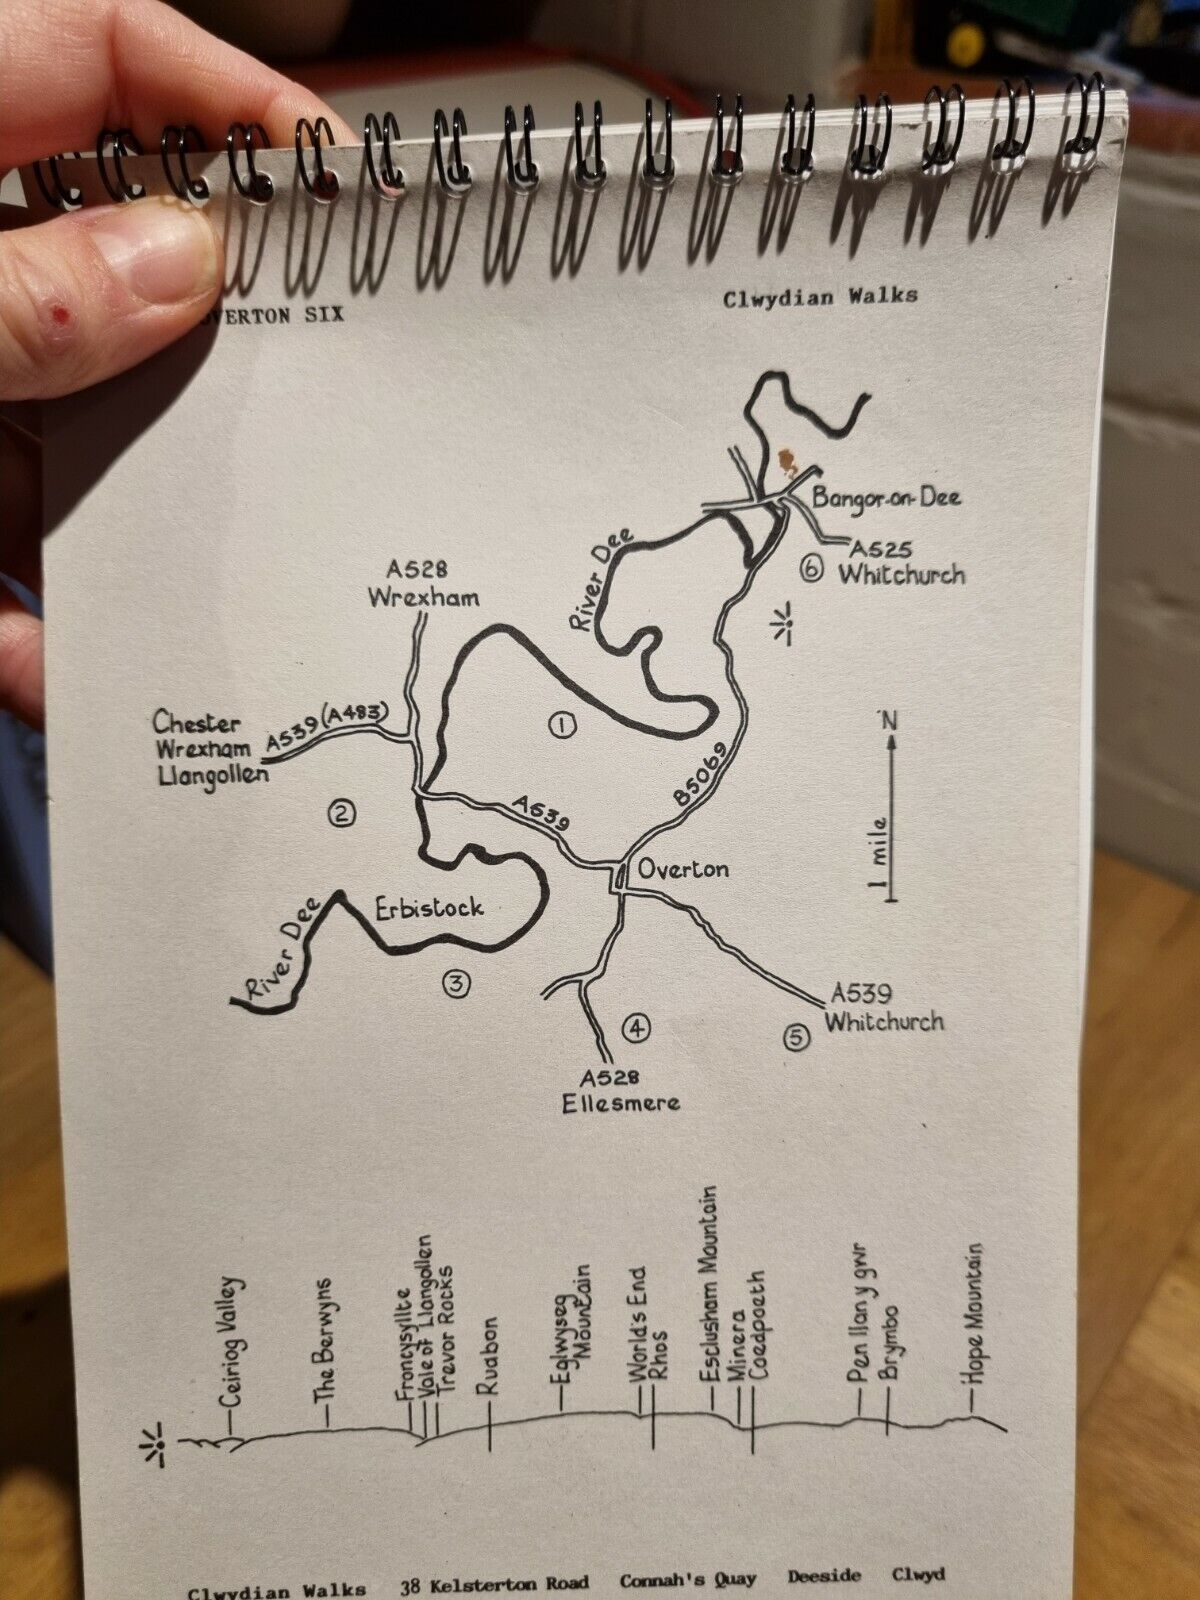 OVERTON SIX
Clwydian Walks
Bangor-on-Dee
A525
Whitchurch
6
River Dee
A528
Wrexham
Chester
Wrexham
Llangollen
A539 (A483)
1
N
1 mile
B5069
2
A539
Overton
Erbistock
River Dee
3
A539
Whitchurch
4
5
A528
Ellesmere
Ceiriog Valley
The Berwyns
Froncysyllte
Vale of Llangollen
Trevor Rocks
Ruabon
Eglwyseg
Mountain
World's End
Rhos
Esclusham Mountain
Minera
Coedpoeth
Pen llan y gwr
Brymbo
Hope Mountain
Clwydian Walks 38 Kelsterton Road Connah's Quay Deeside Clwyd